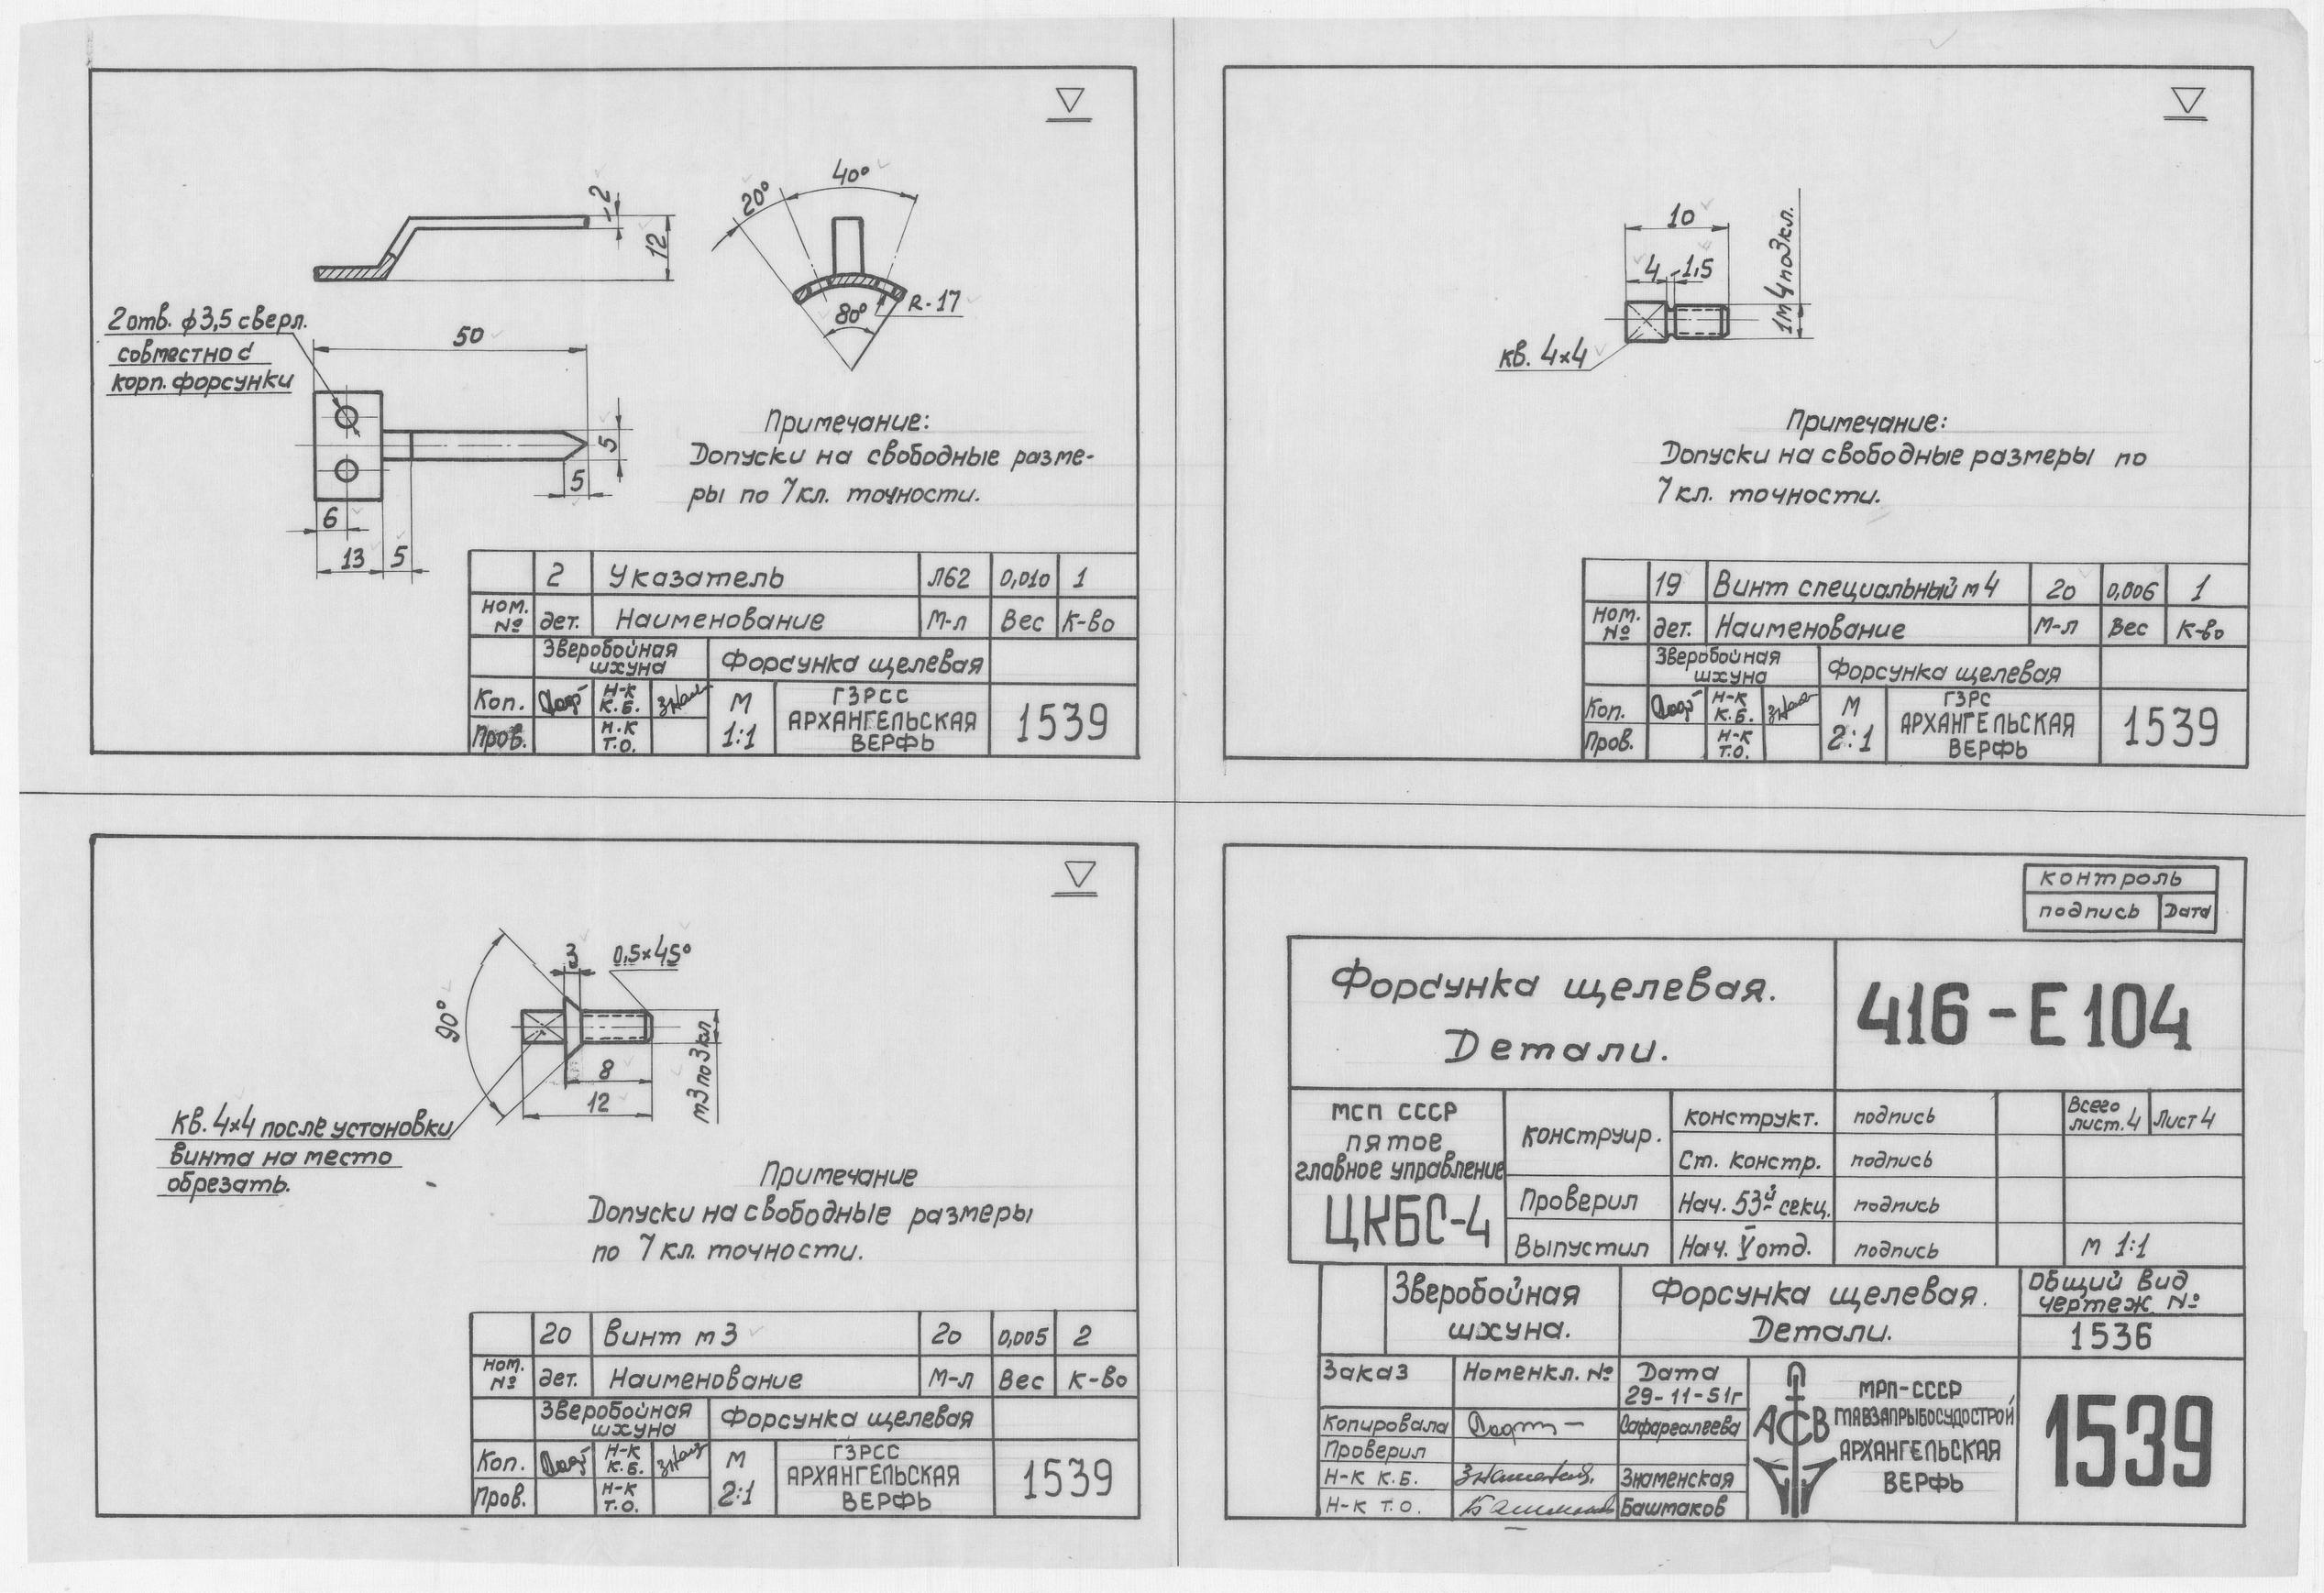 20°
40°
2
12
80°
R-17
2 отв. ф3,5 сверл.
совместно с
корп. форсунки
50
5
5
6
13
5
Примечание:
Допуски на свободные разме-
ры по 7 кл. точности.
2 Указатель Л62 0,010 1
ном. № дет. Наименование М-л Вес К-во
Зверобойная
шхуна
Форсунка щелевая
Коп. Н-К К.Б. М
Пров. Н.К Т.О. 1:1
ГЗРСС
АРХАНГЕЛЬСКАЯ
ВЕРФЬ
1539
10
4
1,5
1М4 по 3 кл.
кв. 4×4
Примечание:
Допуски на свободные размеры по
7 кл. точности.
19 Винт специальный м4 20 0,006 1
ном. № дет. Наименование М-л Вес К-во
Зверобойная
шхуна
Форсунка щелевая
Коп. Н-К К.Б. М
Пров. Н-К Т.О. 2:1
ГЗРС
АРХАНГЕЛЬСКАЯ
ВЕРФЬ
1539
3
0,5×45°
90°
8
12
м3 по 3 кл
Кв. 4×4 после установки
винта на место
обрезать.
Примечание
Допуски на свободные размеры
по 7 кл. точности.
20 Винт м3 20 0,005 2
ном. № дет. Наименование М-л Вес К-во
Зверобойная
шхуна
Форсунка щелевая
Коп. Н-К К.Б. М
Пров. Н-К Т.О. 2:1
ГЗРСС
АРХАНГЕЛЬСКАЯ
ВЕРФЬ
1539
контроль
подпись Дата
Форсунка щелевая.
Детали.
416-Е104
МСП СССР
пятое
главное управление
ЦКБС-4
Конструир. Конструкт. подпись
Ст. констр. подпись
Проверил Нач. 53й секц. подпись
Выпустил Нач. V отд. подпись
Всего лист. 4 Лист 4
М 1:1
Зверобойная
шхуна.
Форсунка щелевая.
Детали.
Общий вид
чертеж №
1536
Заказ Номенкл. № Дата
29-11-51г
Копировала Сафареалеева
Проверил
Н-К К.Б. Знаменская
Н-К Т.О. Башмаков
АСВ
МРП-СССР
ГЛАВЗАПРЫБОСУДОСТРОЙ
АРХАНГЕЛЬСКАЯ
ВЕРФЬ
1539